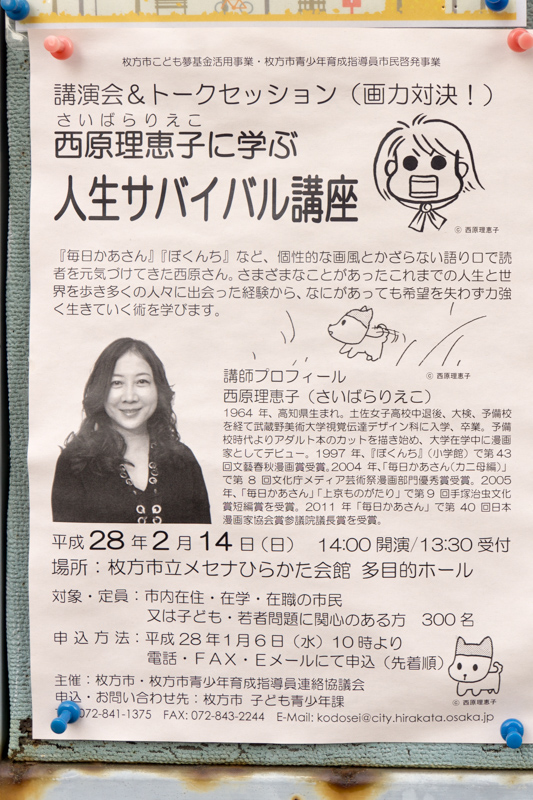 枚方市こども夢基金活用事業・枚方市青少年育成指導員市民啓発事業
講演会＆トークセッション（画力対決！）
さいばらりえこ
西原理恵子に学ぶ
人生サバイバル講座
© 西原理恵子
『毎日かあさん』『ぼくんち』など、個性的な画風とかざらない語り口で読
者を元気づけてきた西原さん。さまざまなことがあったこれまでの人生と世
界を歩き多くの人々に出会った経験から、なにがあっても希望を失わず力強
く生きていく術を学びます。
© 西原理恵子
講師プロフィール
西原理恵子（さいばらりえこ）
1964 年、高知県生まれ。土佐女子高校中退後、大検、予備校
を経て武蔵野美術大学視覚伝達デザイン科に入学、卒業。予備
校時代よりアダルト本のカットを描き始め、大学在学中に漫画
家としてデビュー。1997 年、『ぼくんち』（小学館）で第 43
回文藝春秋漫画賞受賞。2004 年、「毎日かあさん（カニ母編）」
で第 8 回文化庁メディア芸術祭漫画部門優秀賞受賞。2005
年、「毎日かあさん」「上京ものがたり」で第 9 回手塚治虫文化
賞短編賞を受賞。2011 年「毎日かあさん」で第 40 回日本
漫画家協会賞参議院議長賞を受賞。
平成 28 年 2 月 14 日（日） 14:00 開演/13:30 受付
場所：枚方市立メセナひらかた会館 多目的ホール
対象・定員：市内在住・在学・在職の市民
又は子ども・若者問題に関心のある方 300 名
申込方法：平成 28 年 1 月 6 日（水）10 時より
電話・ＦＡＸ・Ｅメールにて申込（先着順）
主催：枚方市・枚方市青少年育成指導員連絡協議会
© 西原理恵子
申込・お問い合わせ先：枚方市 子ども青少年課
072-841-1375 FAX: 072-843-2244 E-Mail: kodosei@city.hirakata.osaka.jp